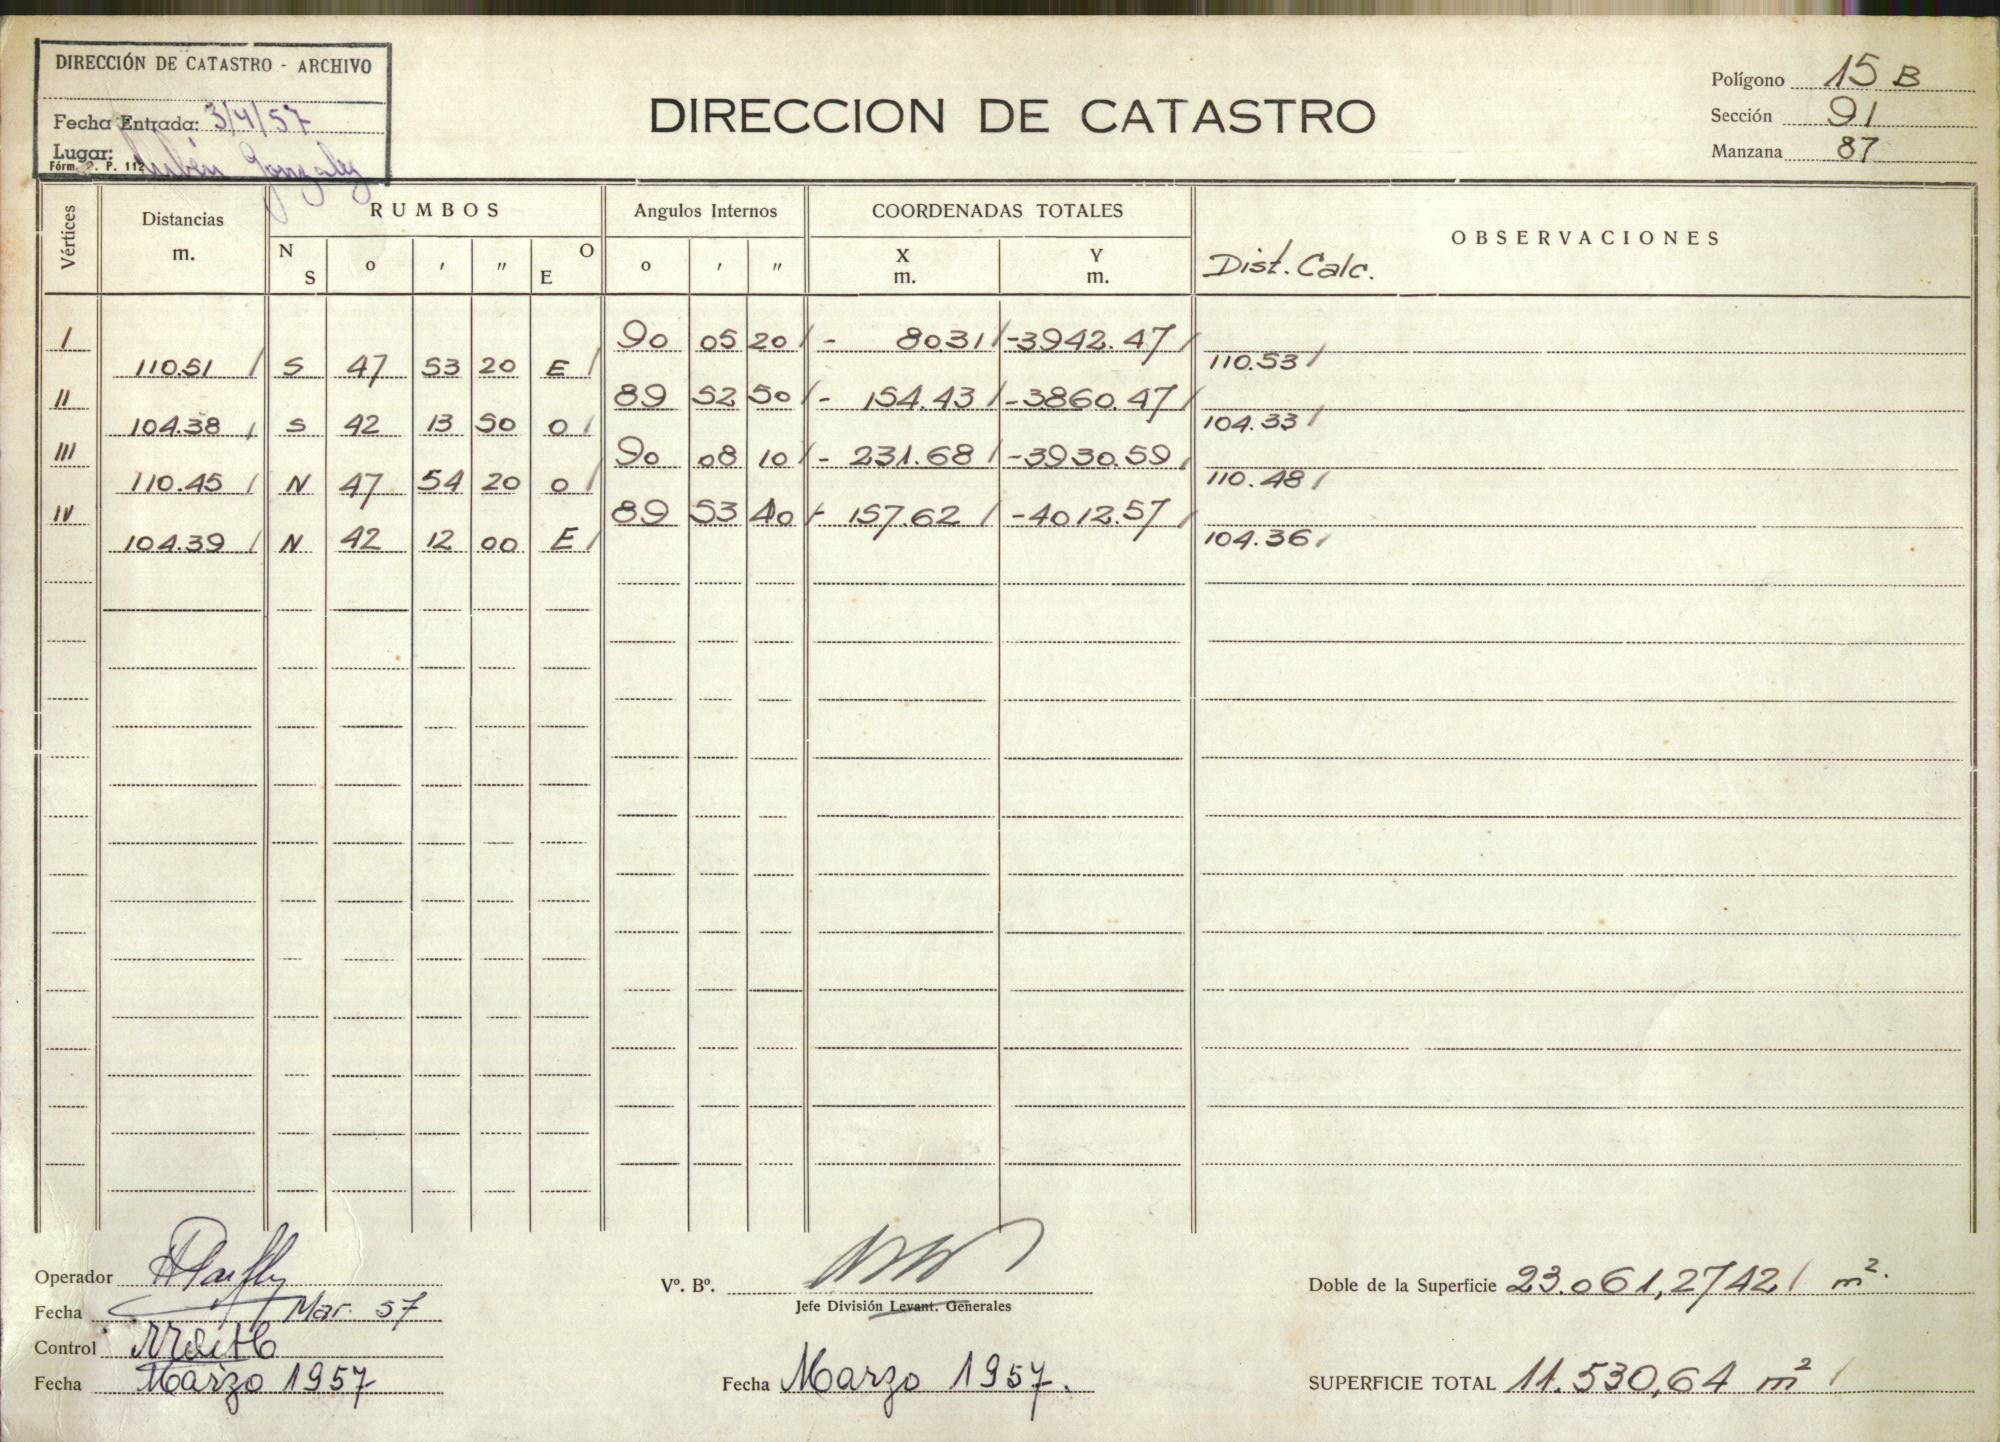 DIRECCIÓN DE CATASTRO - ARCHIVO
Fecha Entrada: 3/4/57
Lugar: Rubén González
Fórm. P. 112
DIRECCION DE CATASTRO
Polígono 15 B
Sección 91
Manzana 87
Vértices Distancias m. RUMBOS Angulos Internos COORDENADAS TOTALES OBSERVACIONES
N S o ' " O E o ' " X m. Y m. Dist. Calc.
I 90 05 20 / - 80.31 / -3942.47 /
110.51 / S 47 53 20 E / 110.53 /
II 89 52 50 / - 154.43 / -3860.47 /
104.38 / S 42 13 50 O / 104.33 /
III 90 08 10 / - 231.68 / -3930.59 /
110.45 / N 47 54 20 O / 110.48 /
IV 89 53 40 / - 157.62 / -4012.57 /
104.39 / N 42 12 00 E / 104.36 /
Operador
Fecha Mar. 57
Control
Fecha Marzo 1957
Vº. Bº.
Jefe División Levant. Generales
Fecha Marzo 1957.
Doble de la Superficie 23.061,2742 / m².
SUPERFICIE TOTAL 11.530,64 m² /